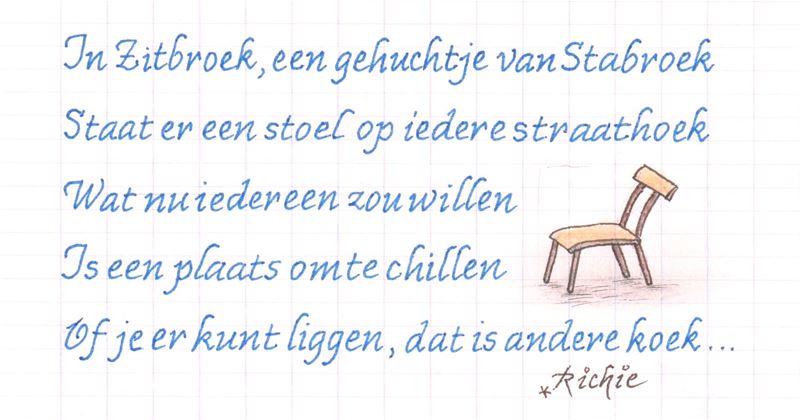 In Zitbroek, een gehuchtje van Stabroek
Staat er een stoel op iedere straathoek
Wat nu iedereen zou willen
Is een plaats om te chillen
Of je er kunt liggen, dat is andere koek...
*Richie